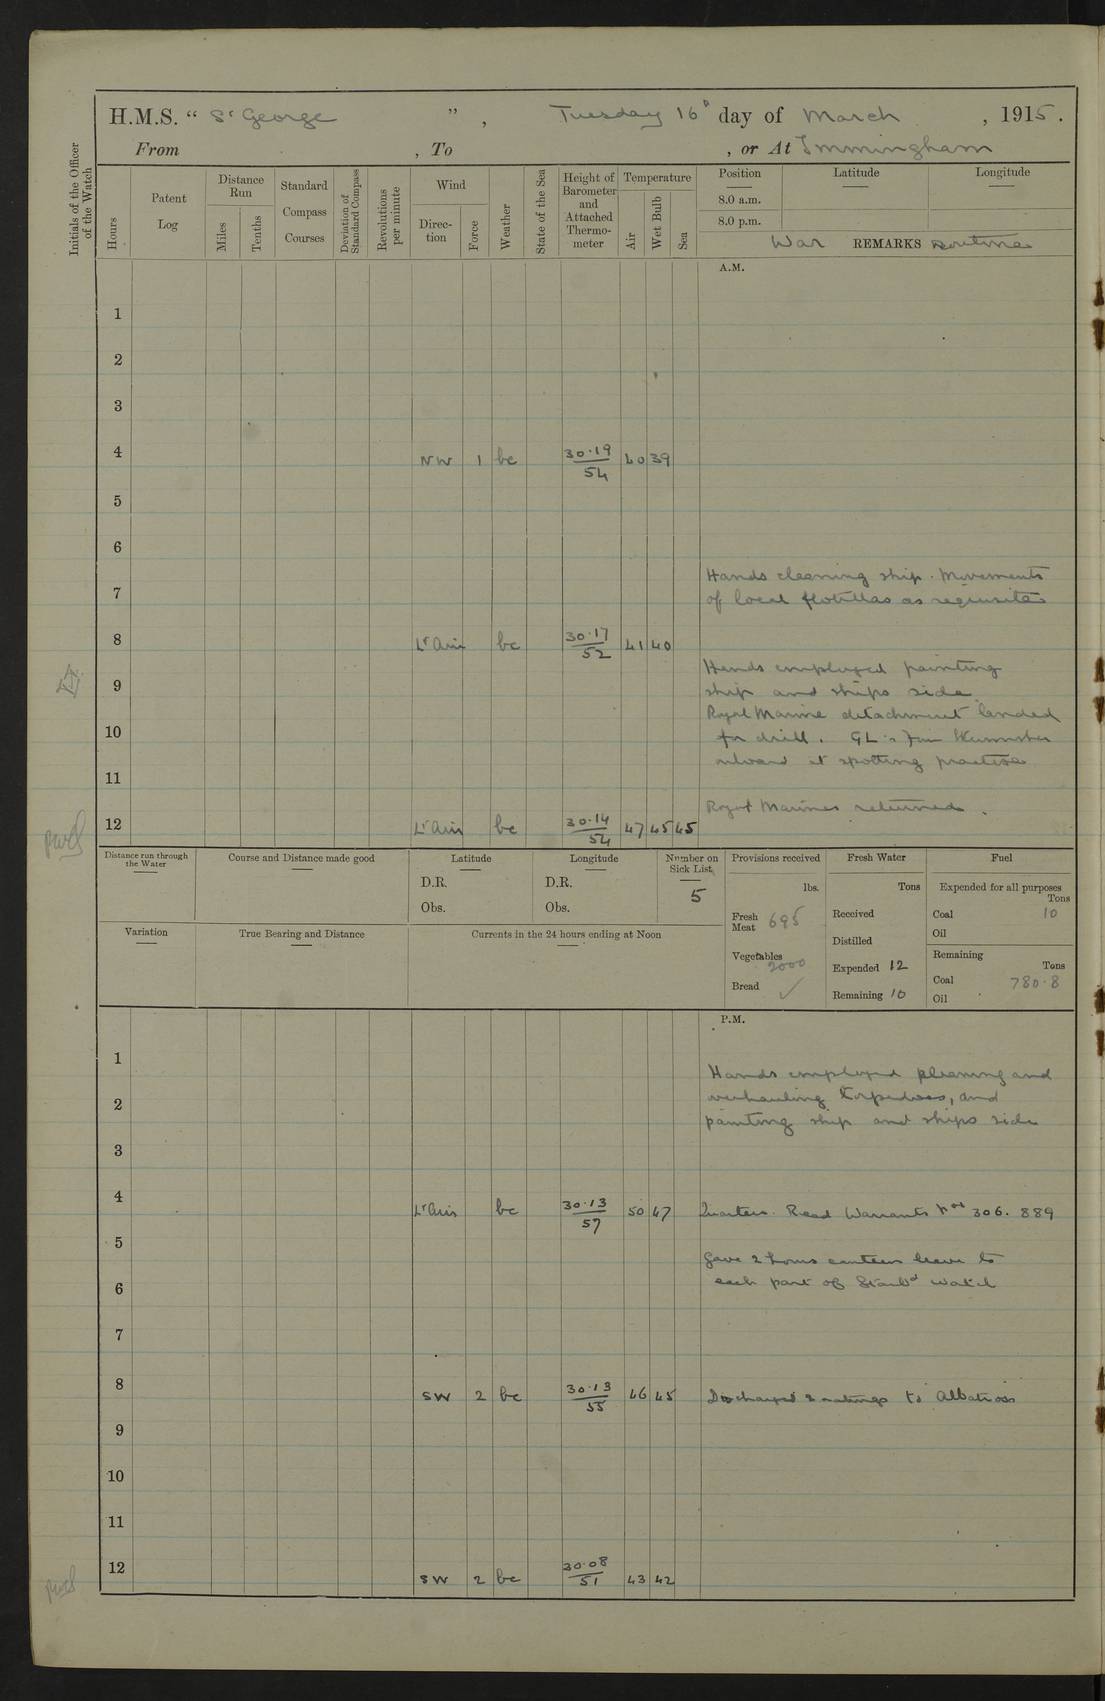 H.M.S. “ St George ” , Tuesday 16th day of March , 1915.
From , To , or At Immingham
Initials of the Officer of the Watch
Hours
Patent Log
Distance Run
Miles
Tenths
Standard Compass Courses
Deviation of Standard Compass
Revolutions per minute
Wind
Direc-tion
Force
Weather
State of the Sea
Height of Barometer and Attached Thermo-meter
Temperature
Air
Wet Bulb
Sea
Position Latitude Longitude
8.0 a.m.
8.0 p.m.
War REMARKS routine
A.M.
1
2
3
4 NW 1 bc 30.19 54 40 39
5
6
Hands cleaning ship. Movements
7
of local flotillas as requisite
8 Lt Airs bc 30.17 52 41 40
Hands employed painting
9
ship and ships side
Royal Marine detachment landed
10
for drill. GL's from
11
onboard at spotting practise
Royal Marines returned.
12 Lt Airs bc 30.14 54 47 45 45
Distance run through the Water
Course and Distance made good
Latitude
D.R.
Obs.
Longitude
D.R.
Obs.
Number on Sick List
5
Provisions received
lbs.
Fresh Meat 695
Vegetables 2000
Bread ✓
Fresh Water
Tons
Received
Distilled
Expended 12
Remaining 10
Fuel
Expended for all purposes
Tons
Coal 10
Oil
Remaining
Tons
Coal 780.8
Oil
Variation
True Bearing and Distance
Currents in the 24 hours ending at Noon
P.M.
1
Hands employed cleaning and
2
overhauling torpedoes, and
painting ship and ships side
3
4 Lt Airs bc 30.13 57 50 47 Quarters. Read Warrants Nos 306. 889
5
Gave 2 hours canteen leave to
6
each part of Starbd watch
7
8 SW 2 bc 30.13 55 46 45 Discharged 2 ratings to Albatross
9
10
11
12 SW 2 bc 30.08 51 43 42